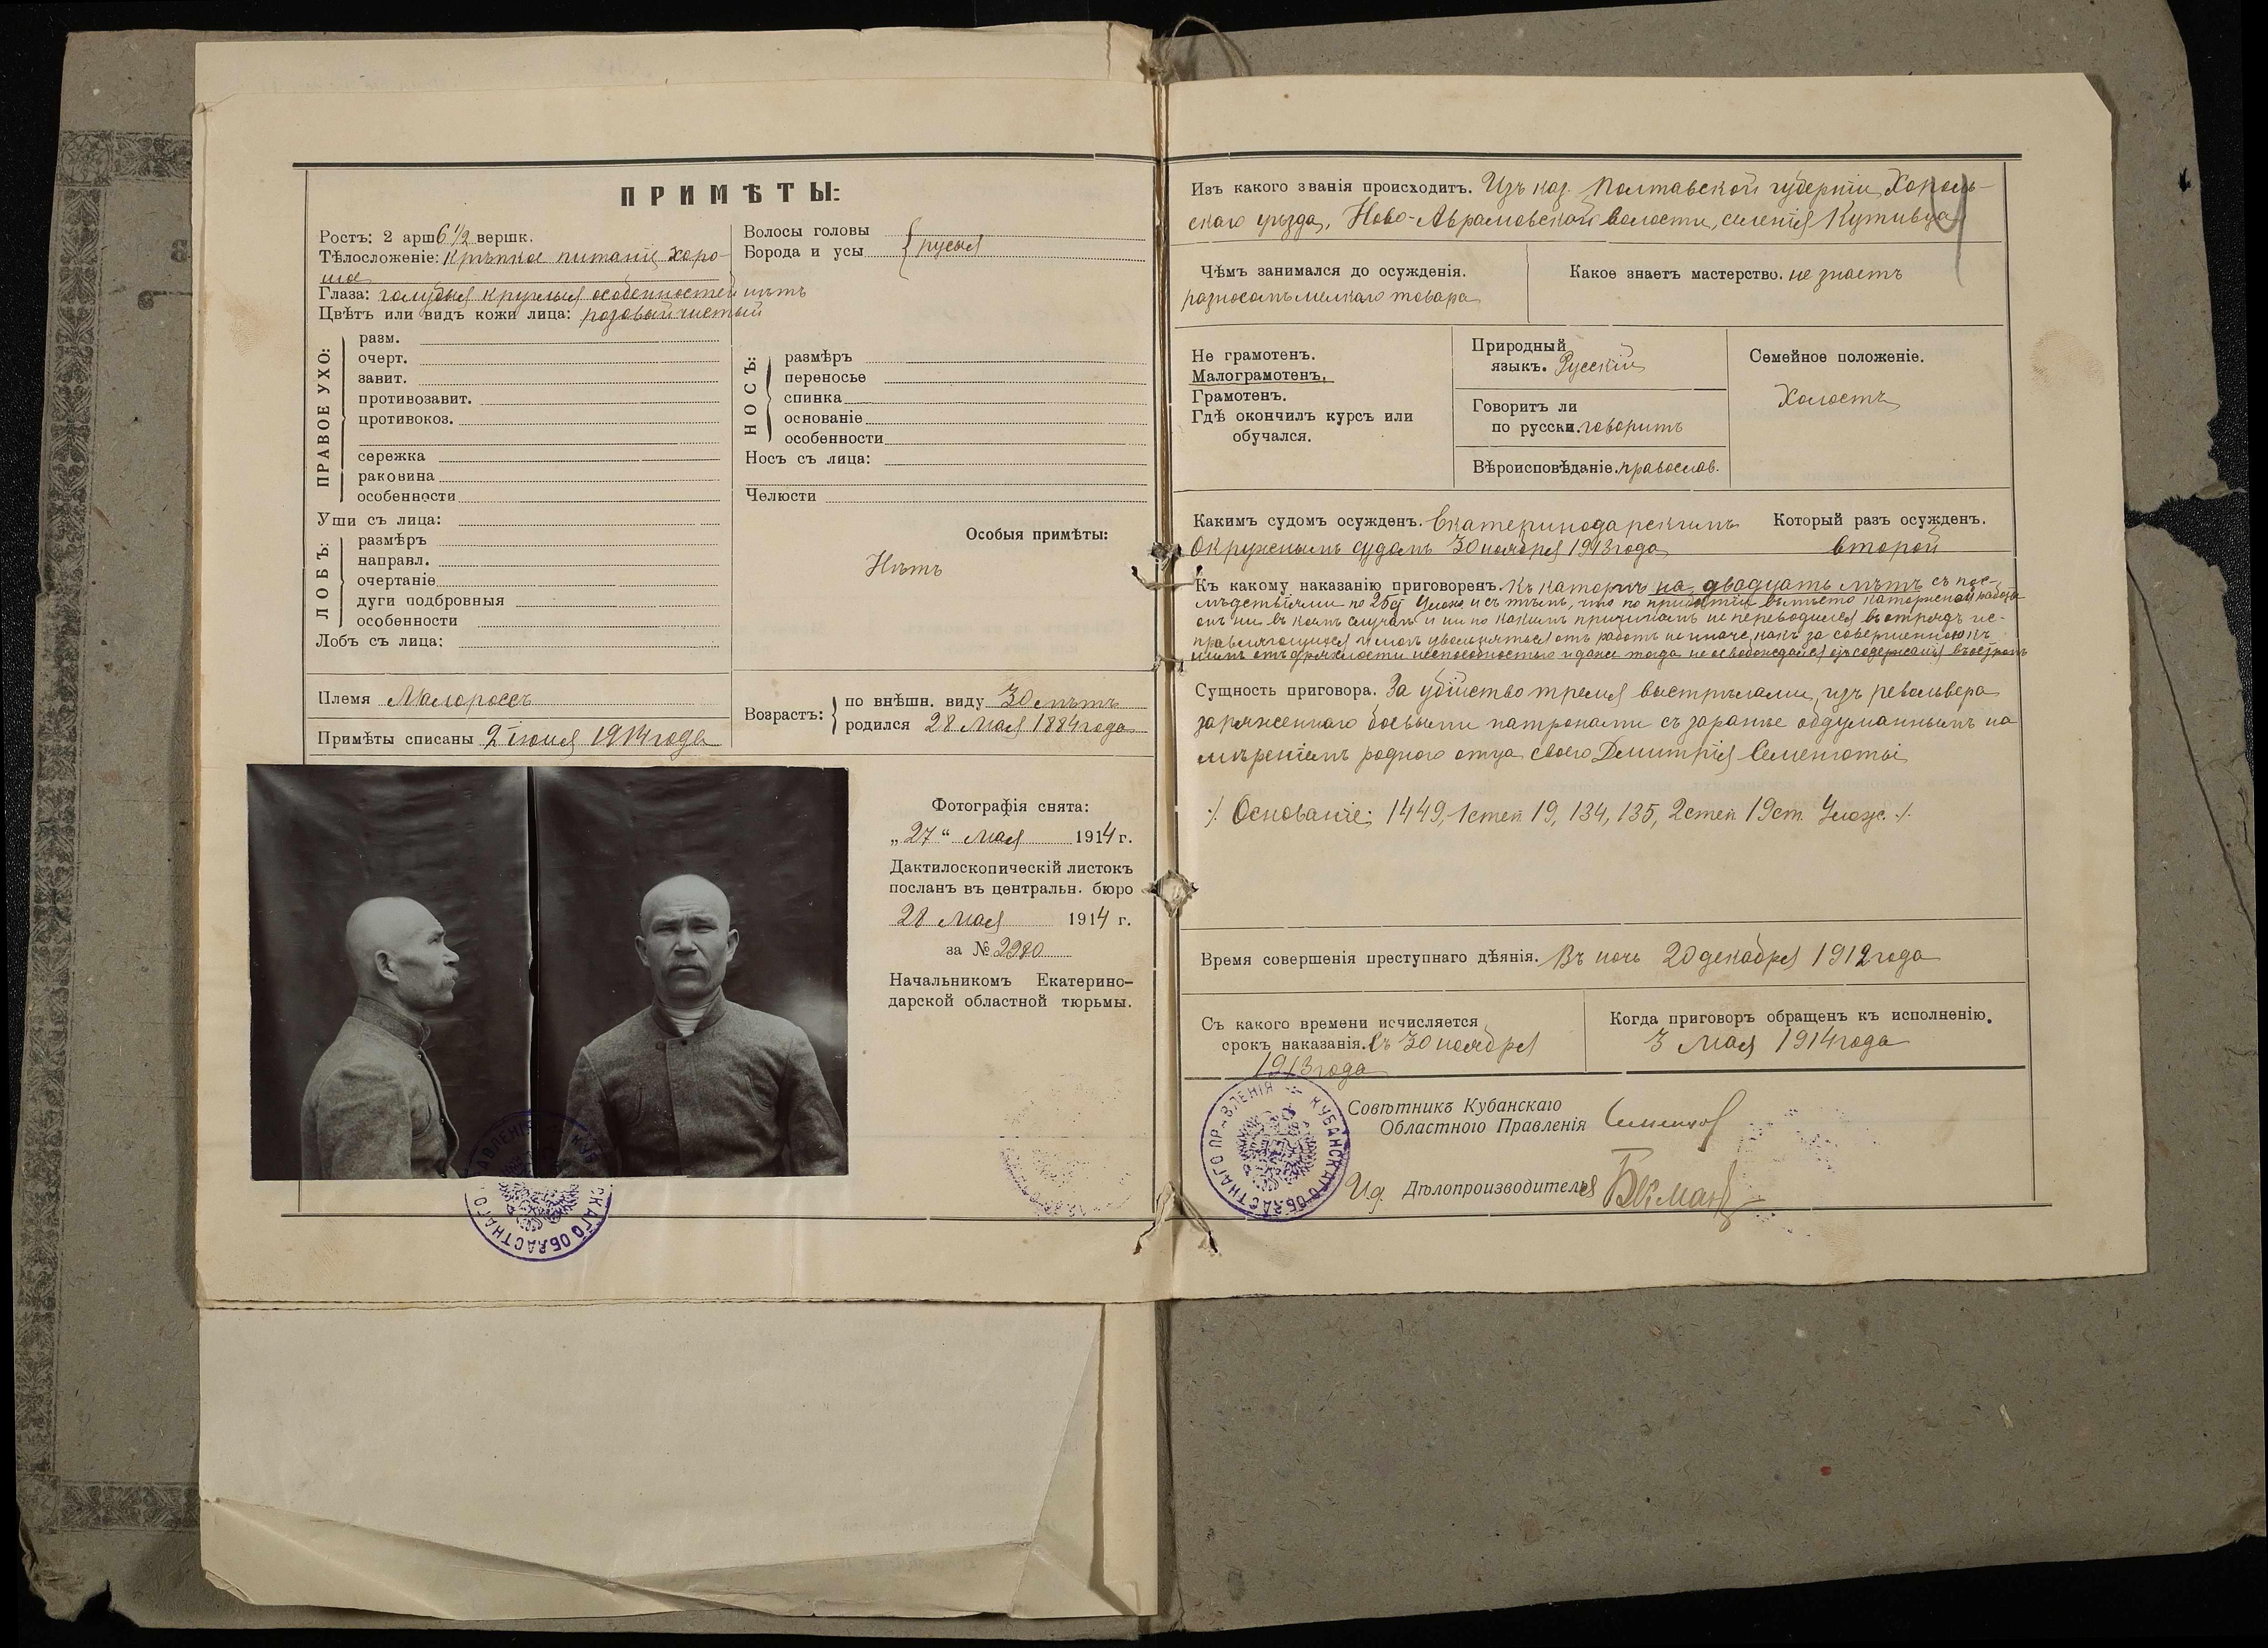 ПРИМѢТЫ:
Ростъ: 2 арш 6 1/2 вершк.
Тѣлосложеніе: крѣпкое питаніе хоро-
шее
Глаза: голубые круглые особенностей нѣтъ
Цвѣтъ или видъ кожи лица: розовый чистый
Волосы головы
Борода и усы
русые
ПРАВОЕ УХО:
разм.
очерт.
завит.
противозавит.
противокоз.
сережка
раковина
особенности
Уши съ лица:
ЛОБЪ:
размѣръ
направл.
очертаніе
дуги подбровныя
особенности
Лобъ съ лица:
НОСЪ:
размѣръ
переносье
спинка
основаніе
особенности
Носъ съ лица:
Челюсти
Особыя примѣты:
Нѣтъ
Племя Малороссъ
Примѣты списаны 2 іюня 1914 года
Возрастъ:
по внѣшн. виду 30 лѣтъ
родился 28 Мая 1884 года
Фотографія снята:
„27“ Мая 1914 г.
Дактилоскопическій листокъ
посланъ въ центральн. бюро
28 Мая 1914 г.
за № 2980
Начальникомъ Екатерино-
дарской областной тюрьмы.
Изъ какого званія происходитъ. Изъ каз. Полтавской губерніи, Хороль-
скаго уѣзда, Ново-Аврамовской волости, селенія
Чѣмъ занимался до осужденія.
разносомъ мелкаго товара
Какое знаетъ мастерство. не знаетъ
Не грамотенъ.
Малограмотенъ.
Грамотенъ.
Гдѣ окончилъ курсъ или
обучался.
Природный
языкъ. Русскій
Говоритъ ли
по русски. говоритъ
Вѣроисповѣданіе. православ.
Семейное положеніе.
Холостъ
Какимъ судомъ осужденъ. Екатеринодарскимъ
Окружнымъ судомъ 30 ноября 1913 года
Который разъ осужденъ.
второй
Къ какому наказанію приговоренъ. Къ каторгѣ на двадцать лѣтъ съ пос-
лѣдствіями по 25 ст Улож. и съ тѣмъ, что по прибытіи въ мѣсто каторжной работы
онъ ни въ комъ случаѣ и ни по какимъ причинамъ не переводился въ отрядъ ис-
правляющихся и могъ увольняться отъ работъ не иначе, какъ за совершенною къ
нимъ отъ дряхлости неспособностью и даже тогда не освобождался отъ содержанія въ острогѣ
Сущность приговора. За убійство тремя выстрѣлами изъ револьвера
заряженнаго боевыми патронами съ заранѣе обдуманнымъ на
мѣреніемъ родного отца своего Дмитрія
Основаніе: 1449, 1 степ 19, 134, 135, 2 степ 19 ст. Улож.
Время совершенія преступнаго дѣянія. Въ ночь 20 декабря 1912 года
Съ какого времени исчисляется
срокъ наказанія. Съ 30 ноября
1913 года
Когда приговоръ обращенъ къ исполненію.
3 Мая 1914 года
Совѣтникъ Кубанскаго
Областного Правленія
И.д. Дѣлопроизводителя
КУБАНСКАГО ОБЛАСТНАГО ПРАВЛЕНІЯ